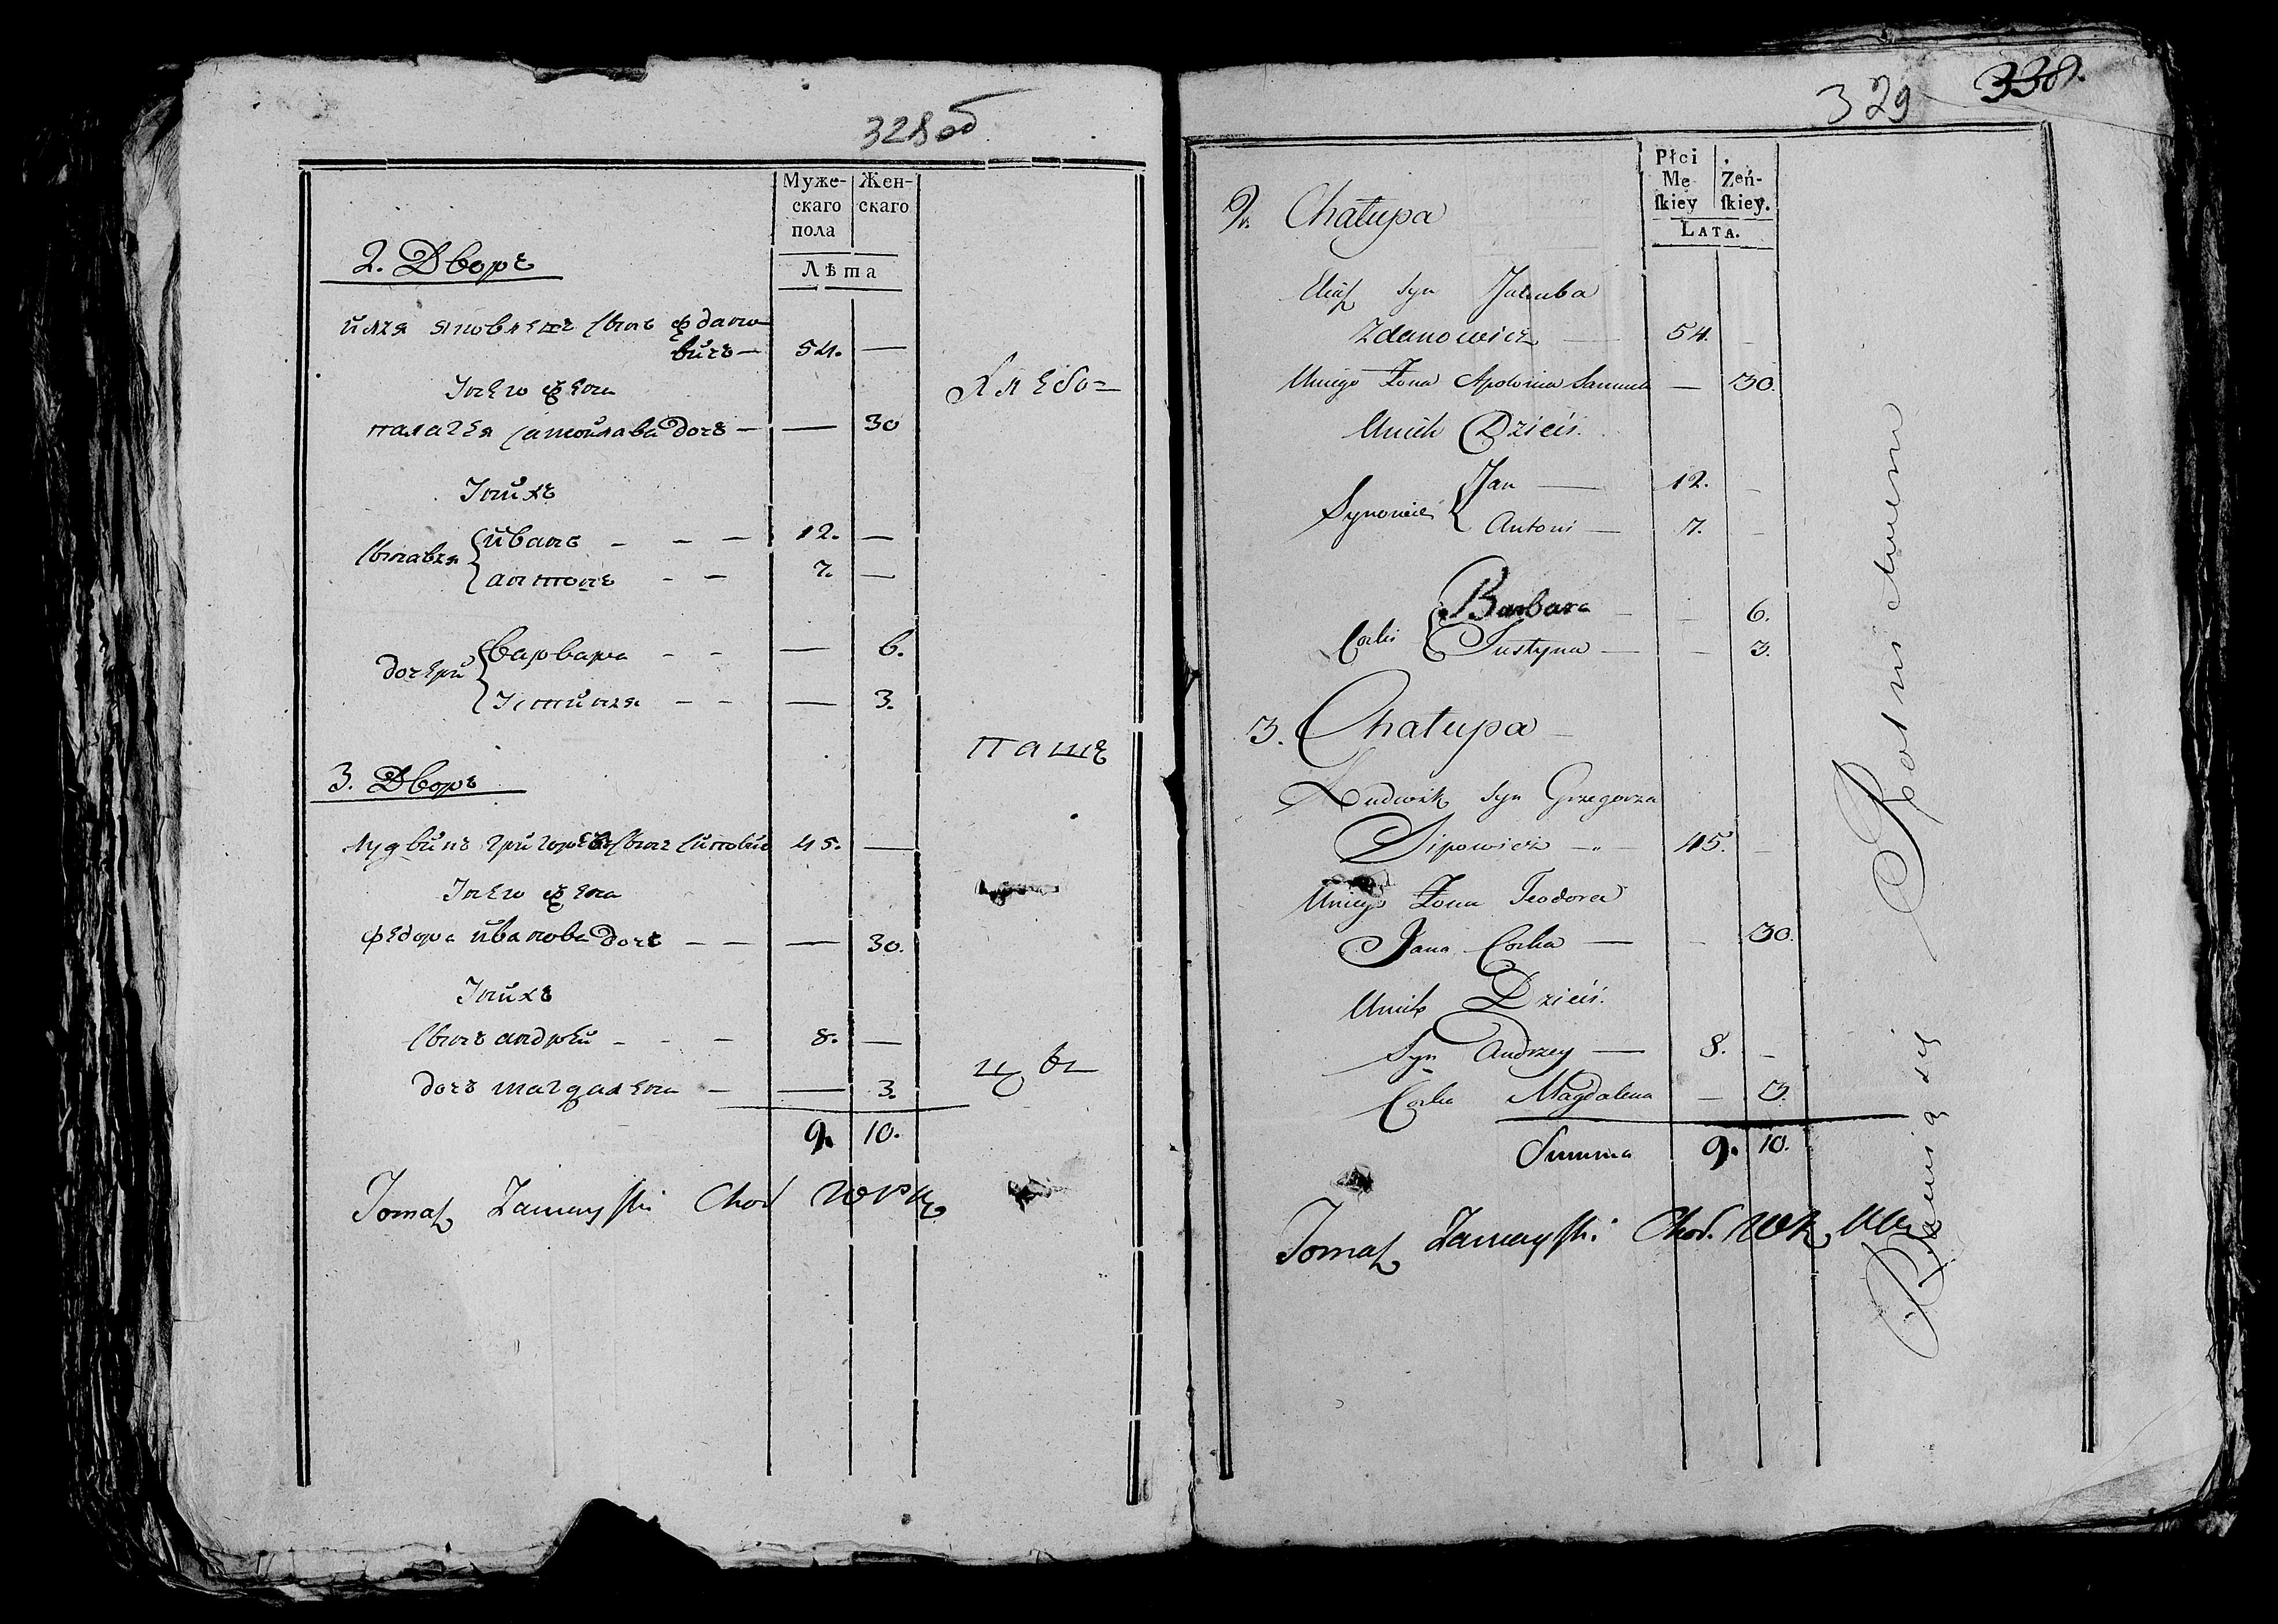 328об
Муже-
скаго
пола
Жен-
скаго
Лѣта
2. Дворъ
илья яковлевъ сынъ жданo-
вичъ — 54. —
Унего жена
палагея самойлава дочъ — — 30
Унихъ
сыновья
иванъ — — — 12. —
антонъ — — 7. —
дочери
варвара — — — 6.
Устинья — — — 3.
Хлебо=
паше
цы
3. Дворъ
лудвикъ григорьевъ сынъ сиповичъ 45. —
Унего жена
федора иванова дочъ — — — 30.
Унихъ
сынъ андрей — — — 8. —
дочъ магдалена — — 3.
9. 10.
Tomasz Zamayski Chor
329
338.
Płci
Mę
skiey
Zeń-
skiey.
LATA.
2. Chałupa
Eliasz syn Jakuba
Zdanowicz — 54. —
Uniego Żona Apolonia Samuela — 30.
Unich Dzieci.
Synowie
Jan — 12. —
Antoni — 7. —
Corki
Barbara — — 6.
Justyna — — 3.
3. Chałupa —
Ludwik syn Grzegorza
Sipowicz — 45. —
Uniego Żona Teodora
Jana Corka — — 30.
Unich Dzieci.
Syn Andrzey — 8. —
Corka Magdalena — 3.
Summa 9. 10.
Tomasz Zamayski Chor.
Bawią się Rolnictwem